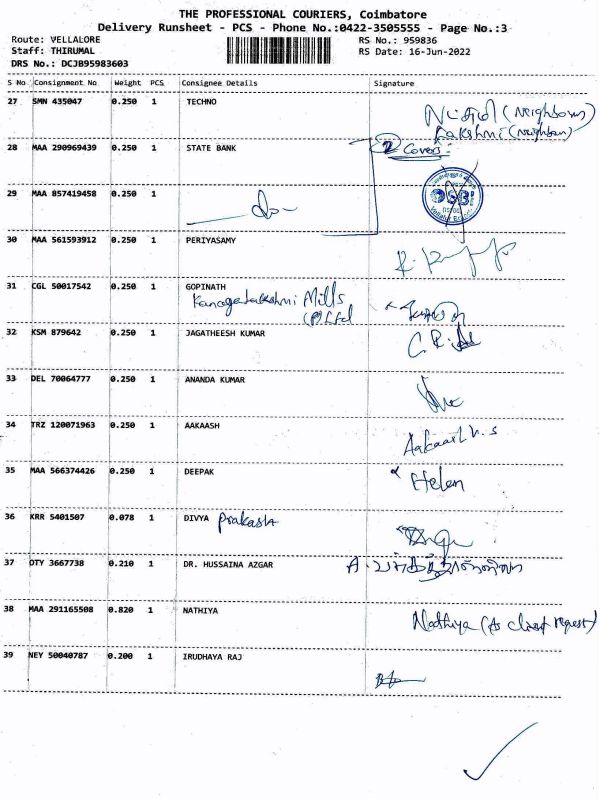 THE PROFESSIONAL COURIERS, Coimbatore
Delivery Runsheet - PCS - Phone No.:0422-3505555 - Page No.:3
Route: VELLALORE
RS No.: 959836
Staff: THIRUMAL
RS Date: 16-Jun-2022
DRS No.: DCJB95983603
S No Consignment No Weight PCS Consignee Details Signature
27 SMN 435047 0.250 1 TECHNO (Neighbours)
Lakshmi (Neighbour)
28 MAA 290969439 0.250 1 STATE BANK 2 Covers
29 MAA 857419458 0.250 1 do SBI
30 MAA 561593912 0.250 1 PERIYASAMY
31 CGL 50017542 0.250 1 GOPINATH
Kanagalakshmi Mills
(P) Ltd
32 KSM 879642 0.250 1 JAGATHEESH KUMAR
33 DEL 70064777 0.250 1 ANANDA KUMAR
34 TRZ 120071963 0.250 1 AAKAASH Aakaash V.S
35 MAA 566374426 0.250 1 DEEPAK Helen
36 KRR 5401507 0.078 1 DIVYA Prakash
37 OTY 3667738 0.210 1 DR. HUSSAINA AZGAR
38 MAA 291165508 0.820 1 NATHIYA Nathiya (As client request)
39 NEY 50040787 0.200 1 IRUDHAYA RAJ